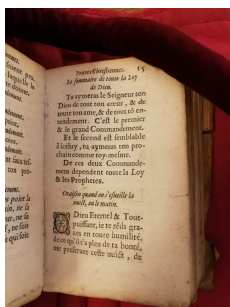 Prieres Chrestiennes. 15
Le sommaire de toute la Loy
de Dieu.
Tu aymeras le Seigneur ton
Dieu de tout ton cœur, & de
toute ton ame, & de tout tō en-
tendement. C'est le premier
& le grand Commandement.
Et le second est semblable
à iceluy, tu aymeras ton pro-
chain comme toy-mesme.
De ces deux Commande-
mens dependent toute la Loy
& les Prophetes.
Oraison quand on s'esueille la
nuict, ou le matin.
O Dieu Eternel & Tout-
puissant, ie te rēds gra-
ces en toute humilité,
de ce qu'il a pleu de ta bonté,
me preseruer ceste nuict, de